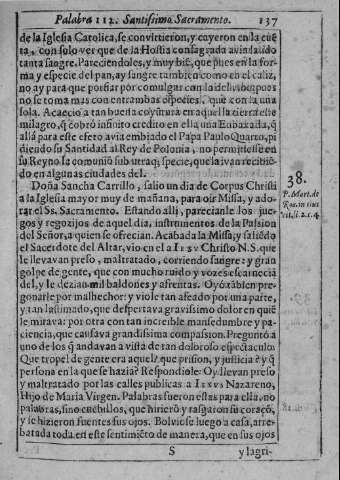 Palabra 112. Santissimo Sacramento. 137
de la Iglesia Catolica, se convirtieron, y cayeron en la cuẽ
ta, con solo ver que de la Hostia consagrada avia salido
tanta sangre. Pareciendoles, y muy biẽ, que pues en la for
ma y especie del pan, ay sangre tambien como en el caliz,
no ay para que porfiar por comulgar con la del vino, pues
no se toma mas con entrambas especies, que con la una
sola. Acaecio a tan buena coyutura en aquella tierra este
milagro, q̃ cobrò infinito credito en ella una Enbaxada, q̃
allá para este efeto avia embiado el Papa Paulo Quarto, pi
diendo su Santidad al Rey de Polonia, no permitiesse en
su Reyno la comuniõ sub utraq; specie, que la ivan recibiẽ
do en algunas ciudades del.
Doña Sancha Carrillo, salio un dia de Corpus Christi
a la Iglesia mayor muy de mañana, para oir Missa, y ado-
rar el Ss. Sacramento. Estando alli, parecianle los jue-
gos y regozijos de aquel dia, instrumentos de la Passion
del Señor, a quien se ofrecian. Acabada la Missa, y saliẽdo
el Sacerdote del Altar, vio en el a Iesv Christo N. S. que
le llevavan preso, maltratado, corriendo sangre: y gran
golpe de gente, que con mucho ruido y vozes escarnecia
del, y le dezian mil baldones y afrentas. Oyó tãbien pre-
gonarle por malhechor: y viole tan afeado por una parte,
y tan lastimado, que despertava gravissimo dolor en quiẽ
le mirava: por otra con tan increible mansedumbre y pa-
ciencia, que causava grandissima compassion. Preguntó a
uno de los q̃ andavan a vista de tan doloroso espectaculo:
Que tropel de gente era aquel? que prision, y justicia? y q̃
persona en la que se hazia? Respondiole: Oy llevan preso
y maltratado por las calles publicas a Iesvs Nazareno,
Hijo de Maria Virgen. Palabras fueron estas para ella, no
palabras, sino cuchillos, que hirierõ y rasgaron su coraçõ,
y le hizieron fuentes sus ojos. Bolviose luego a casa, arre-
batada toda en este sentimiẽto de manera, que en sus ojos
S y lagri-
38.
P. Mart. de
Roa. in eius